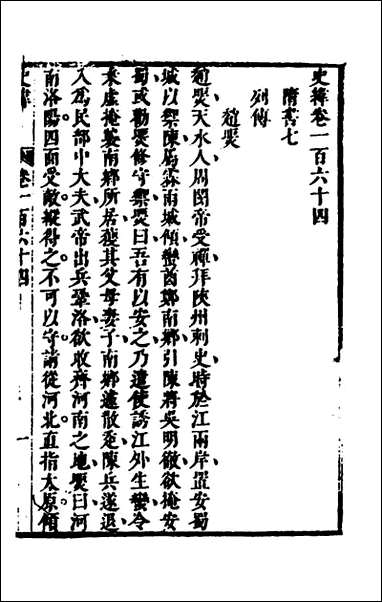 史緯卷一百六十四
隋書七
列傳
趙煚
趙煚天水人周閔帝受禪拜陝州刺史時於江兩岸置安蜀
城以禦陳屬霖雨城傾蠻酋鄭南鄉引陳將吳明徹欲掩安
蜀或勸煚修守禦煚曰吾有以安之乃遣使誘江外生蠻令
乘虛掩襲南鄉所居獲其父母妻子南鄉遂散走陳兵遂退
入爲民部中大夫武帝出兵鞏洛欲收齊河南之地煚曰河
南洛陽四面受敵縱得之不可以守請從河北直指太原傾
史緯 卷一百六十四 一